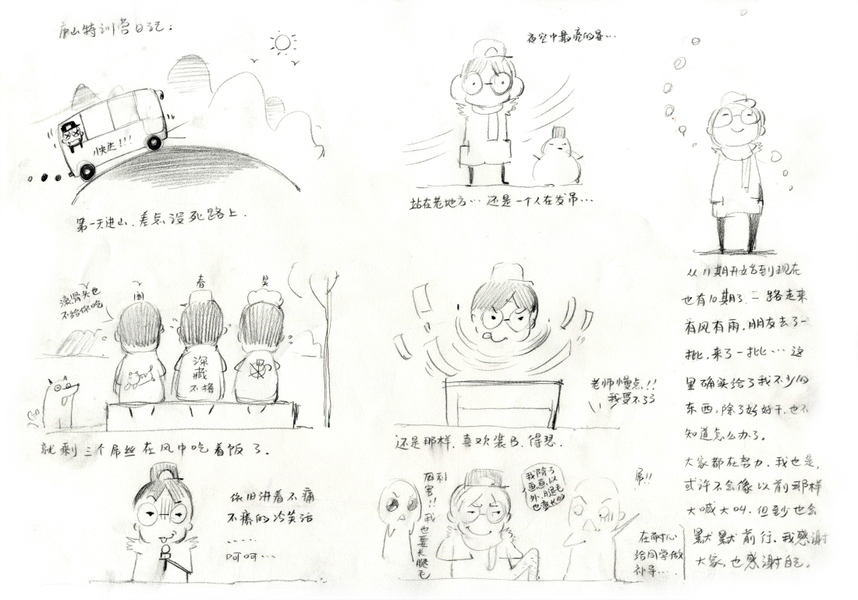 唐山特训营日记:
快进!!!
第一天进山,差点没死路上.
夜空中最亮的星…
站在老地方…还是一个人在发呆…
没骨头也
不给你吃
春
深
藏
不
格
就剩三个屌丝在风中吃着饭了.
老师慢点!!
我受不了
还是那样,喜欢装B,得瑟.
依旧讲着不痛
不痒的冷笑话
……
呵呵…
厉害!!
我也要长腿毛
我除了
画画以
外,腿毛
也漂亮
在耐心
给同学做
补导…
从11期开始到现在
也有10期了,一路走来
有风有雨,朋友去了一
批,来了一批…这
里确实给了我不少的
东西,除了好好干,也不
知道怎么办了.
大家都在努力,我也是,
或许不会像以前那样
大喊大叫,但到少也会
默默前行,我感谢
大家,也感谢自己.